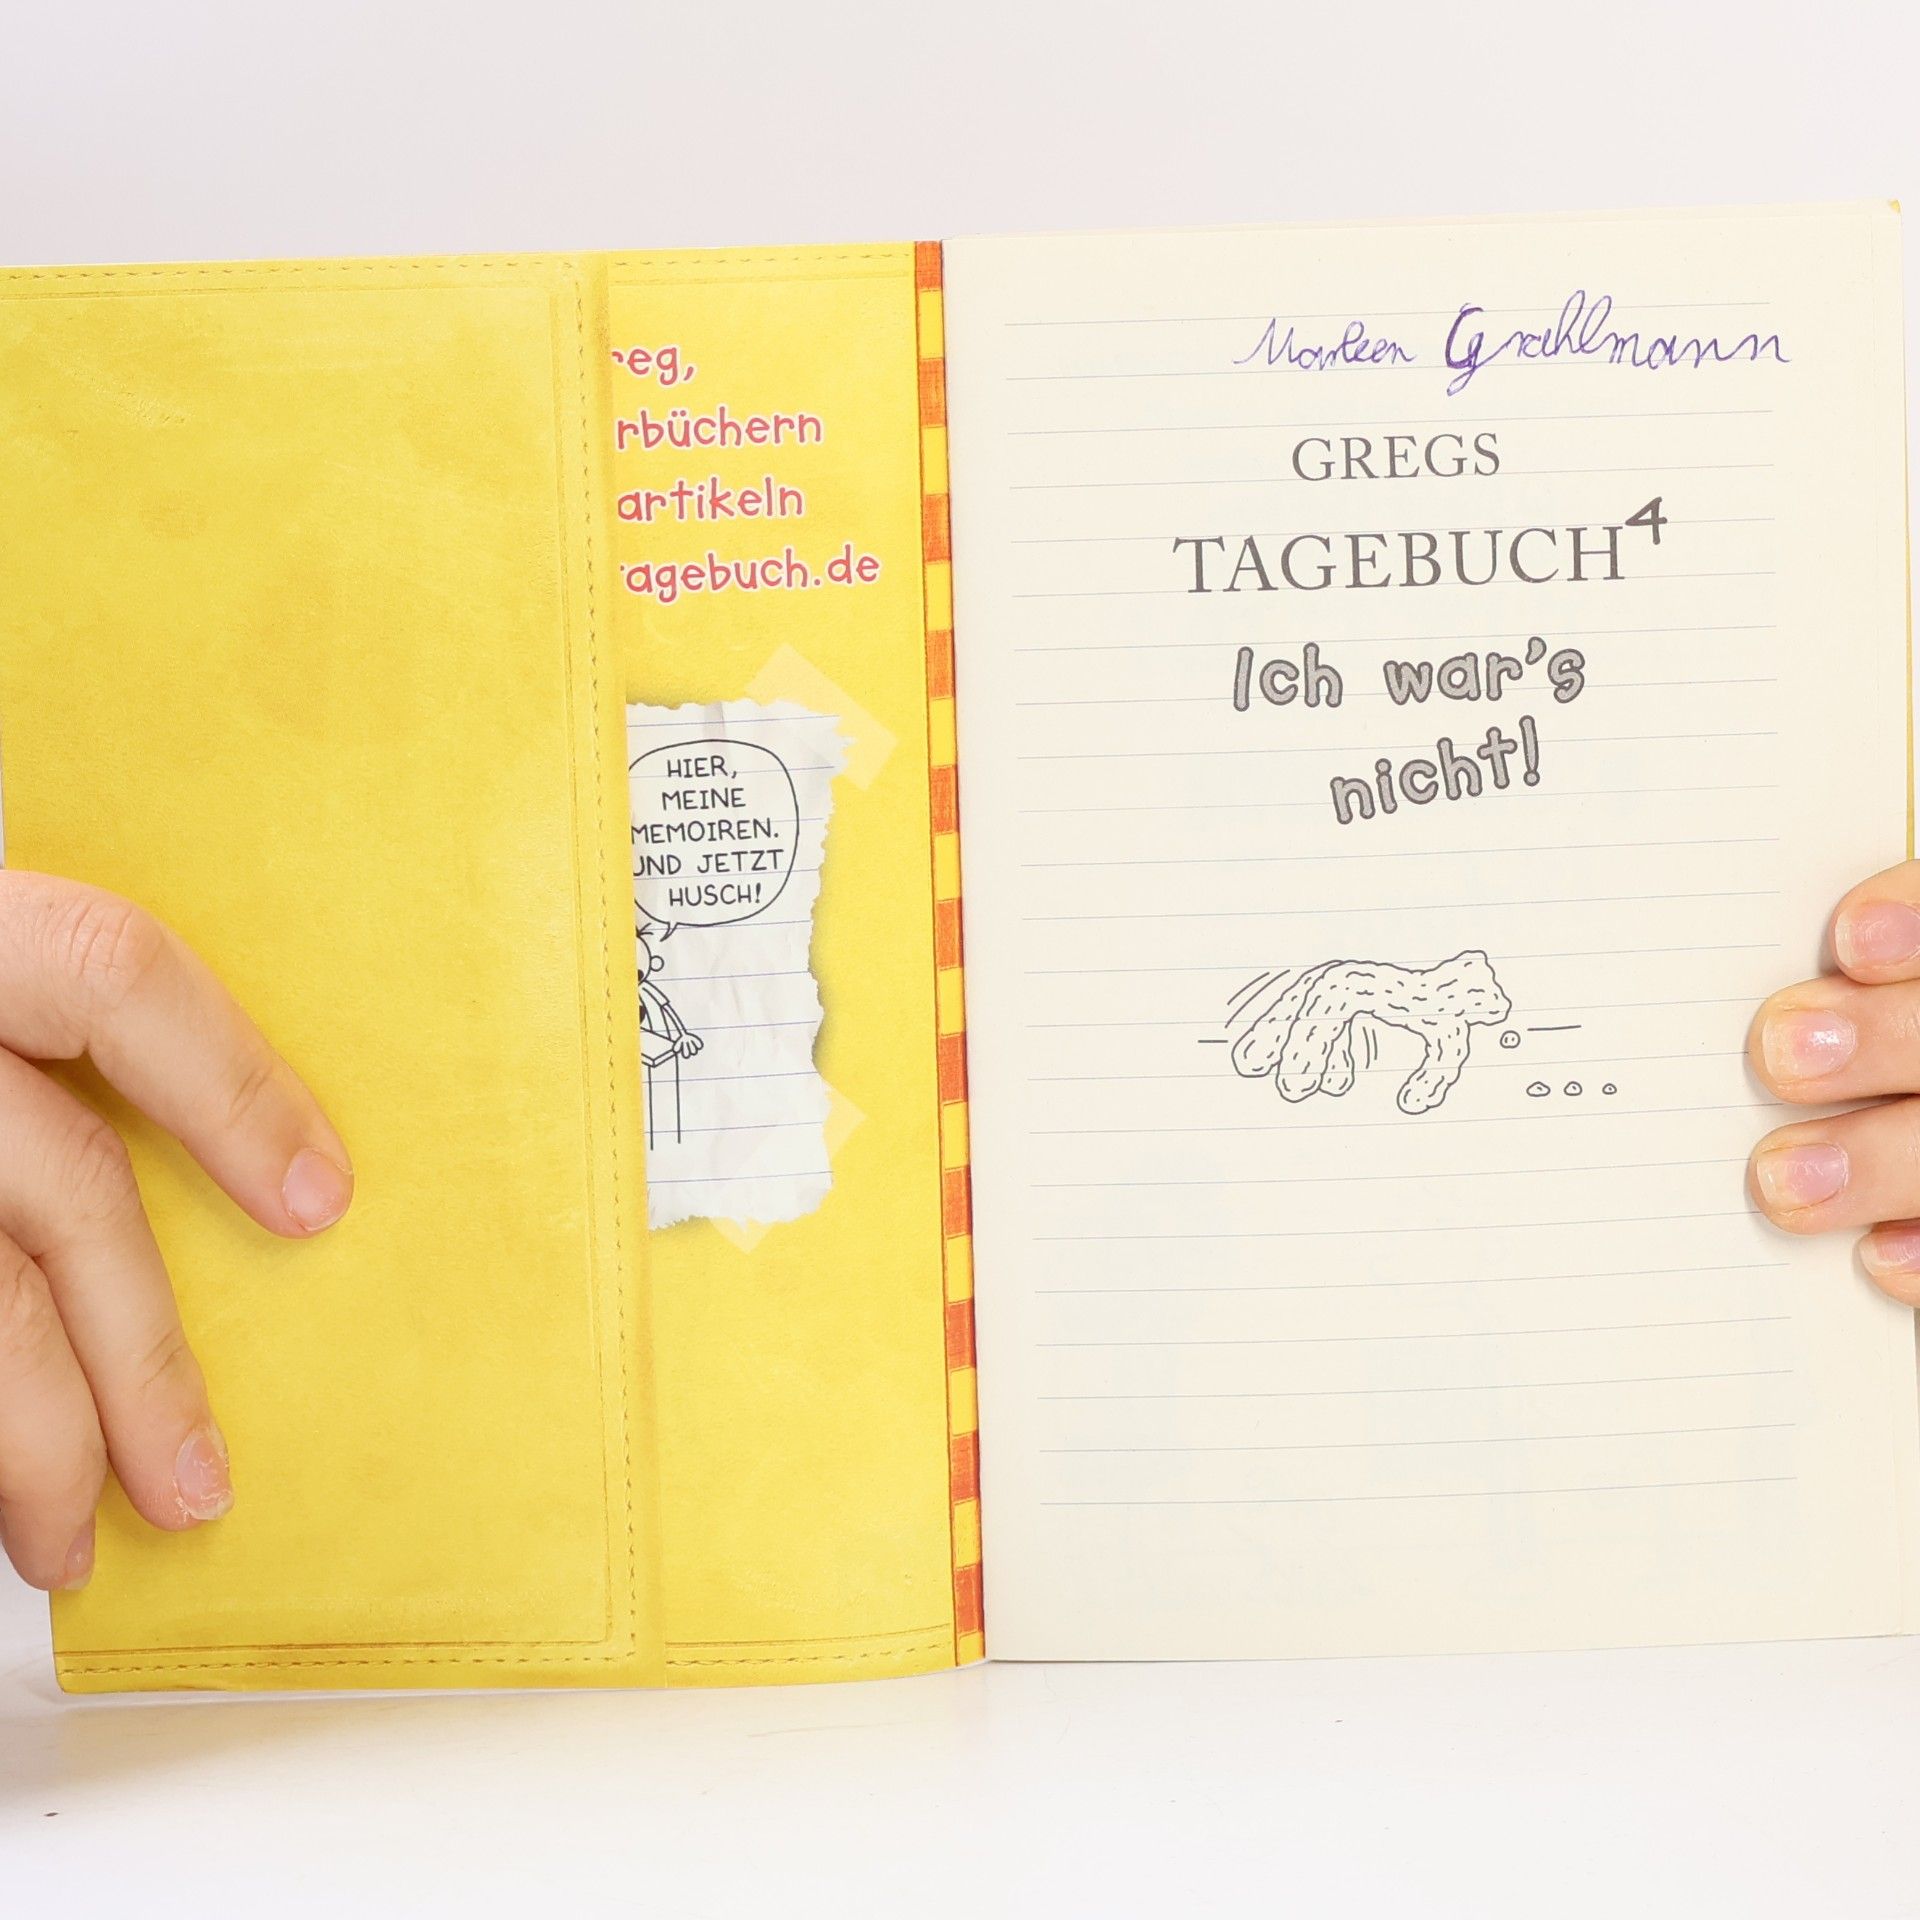 reg,
rbüchern
artikeln
tagebuch.de
HIER,
MEINE
MEMOIREN.
UND JETZT
HUSCH!
Marleen Grahlmann
GREGS
TAGEBUCH4
Ich war's
nicht!